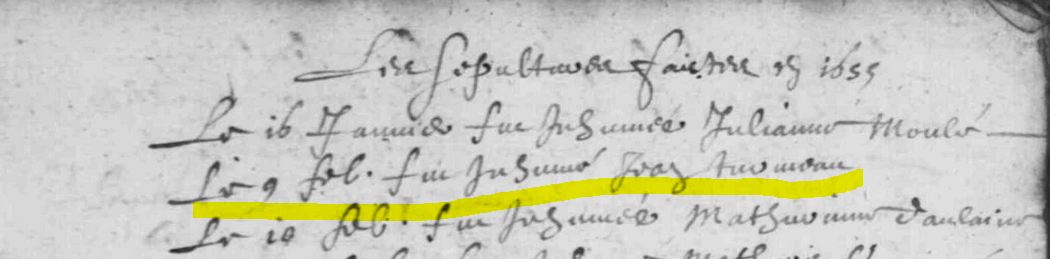 Les sepultures faictes en 1655
Le 16 Janvier fut Inhumée Julianne Moulé
Le 9 feb. fut Inhumé Jean
Le 10 feb. fut Inhumée Mathurinne Daulaine